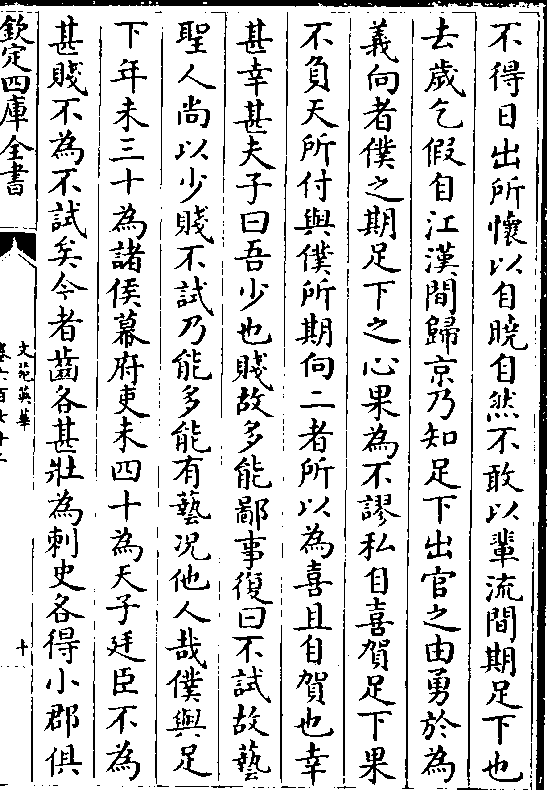 不得日出所懷以自曉自然不敢以輩流間期足下也
去歲乞假自江漢間歸京乃知足下出官之由勇於為
義向者僕之期足下之心果為不謬私自喜賀足下果
不負天所付與僕所期向二者所以為喜且自賀也幸
甚幸甚夫子曰吾少也賤故多能鄙事復曰不試故藝
聖人尚以少賤不試乃能多能有藝况他人哉僕與足
下年未三十為諸侯幕府吏未四十為天子廷臣不為
甚賤不為不試矣今者齒各甚壯為刺史各得小郡俱
欽定四庫全書
文苑英華
十